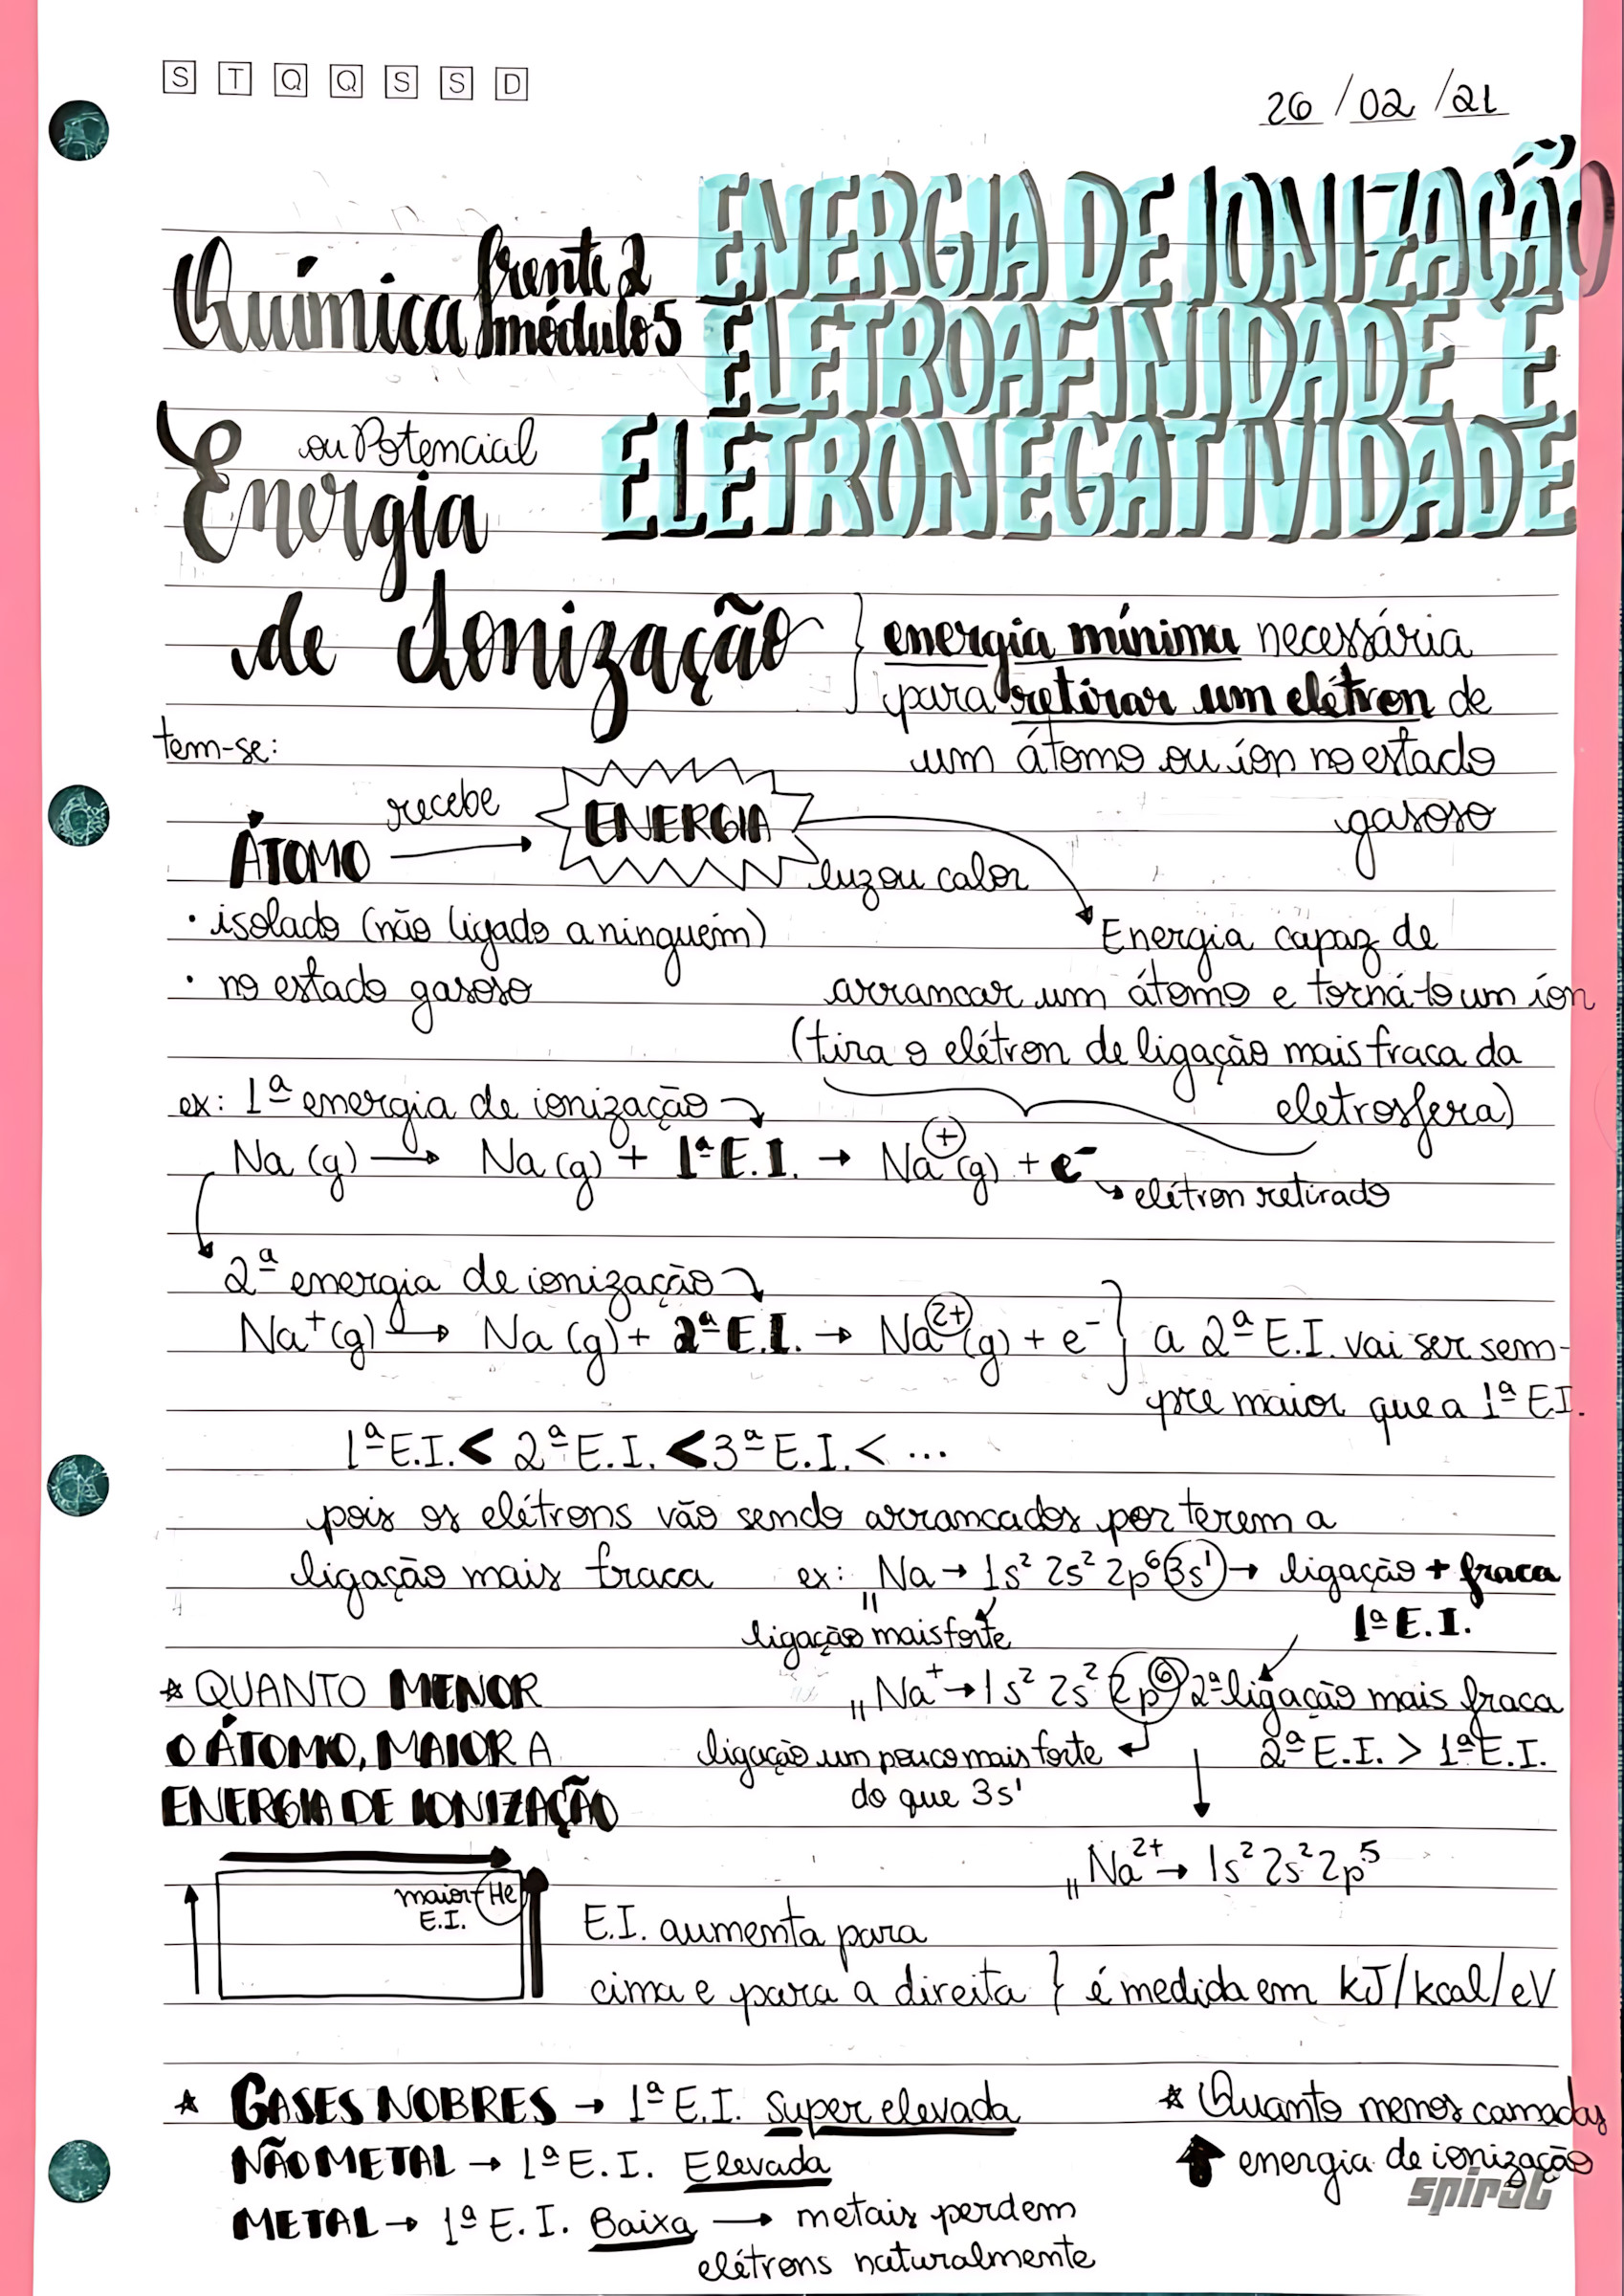 S T Q Q S S D
26/02/21
Química frente 2 módulo 5
ENERGIA DE IONIZAÇÃO
ELETROAFINIDADE E
ELETRONEGATIVIDADE
ou Potencial
Energia
de Ionização } energia mínima necessária
para retirar um elétron de
um átomo ou íon no estado
gasoso
tem-se:
ÁTOMO recebe → ENERGIA
luz ou calor
• isolado (não ligado a ninguém)
• no estado gasoso
Energia capaz de
arrancar um átomo e torná-lo um íon
(tira o elétron de ligação mais fraca da
eletrosfera)
ex: 1ª energia de ionização
Na (g) → Na (g) + 1ª E.I. → Na⁺(g) + e⁻
↳ elétron retirado
2ª energia de ionização
Na⁺(g) → Na (g) + 2ª E.I. → Na²⁺(g) + e⁻ } a 2ª E.I. vai ser sem-
pre maior que a 1ª E.I.
1ª E.I. < 2ª E.I. < 3ª E.I. < ...
pois os elétrons vão sendo arrancados por terem a
ligação mais fraca ex: ₁₁Na → 1s² 2s² 2p⁶ 3s¹ → ligação + fraca
1ª E.I.
ligação mais forte
₁₁Na⁺ → 1s² 2s² 2p⁶ 2ª ligação mais fraca
2ª E.I. > 1ª E.I.
ligação um pouco mais forte
do que 3s¹
₁₁Na²⁺ → 1s² 2s² 2p⁵
* QUANTO MENOR
O ÁTOMO, MAIOR A
ENERGIA DE IONIZAÇÃO
maior He
E.I.
E.I. aumenta para
cima e para a direita } é medida em kJ/kcal/eV
* GASES NOBRES → 1ª E.I. Super elevada
NÃO METAL → 1ª E.I. Elevada
METAL → 1ª E.I. Baixa → metais perdem
elétrons naturalmente
* Quanto menos camadas
↑ energia de ionização
spiral